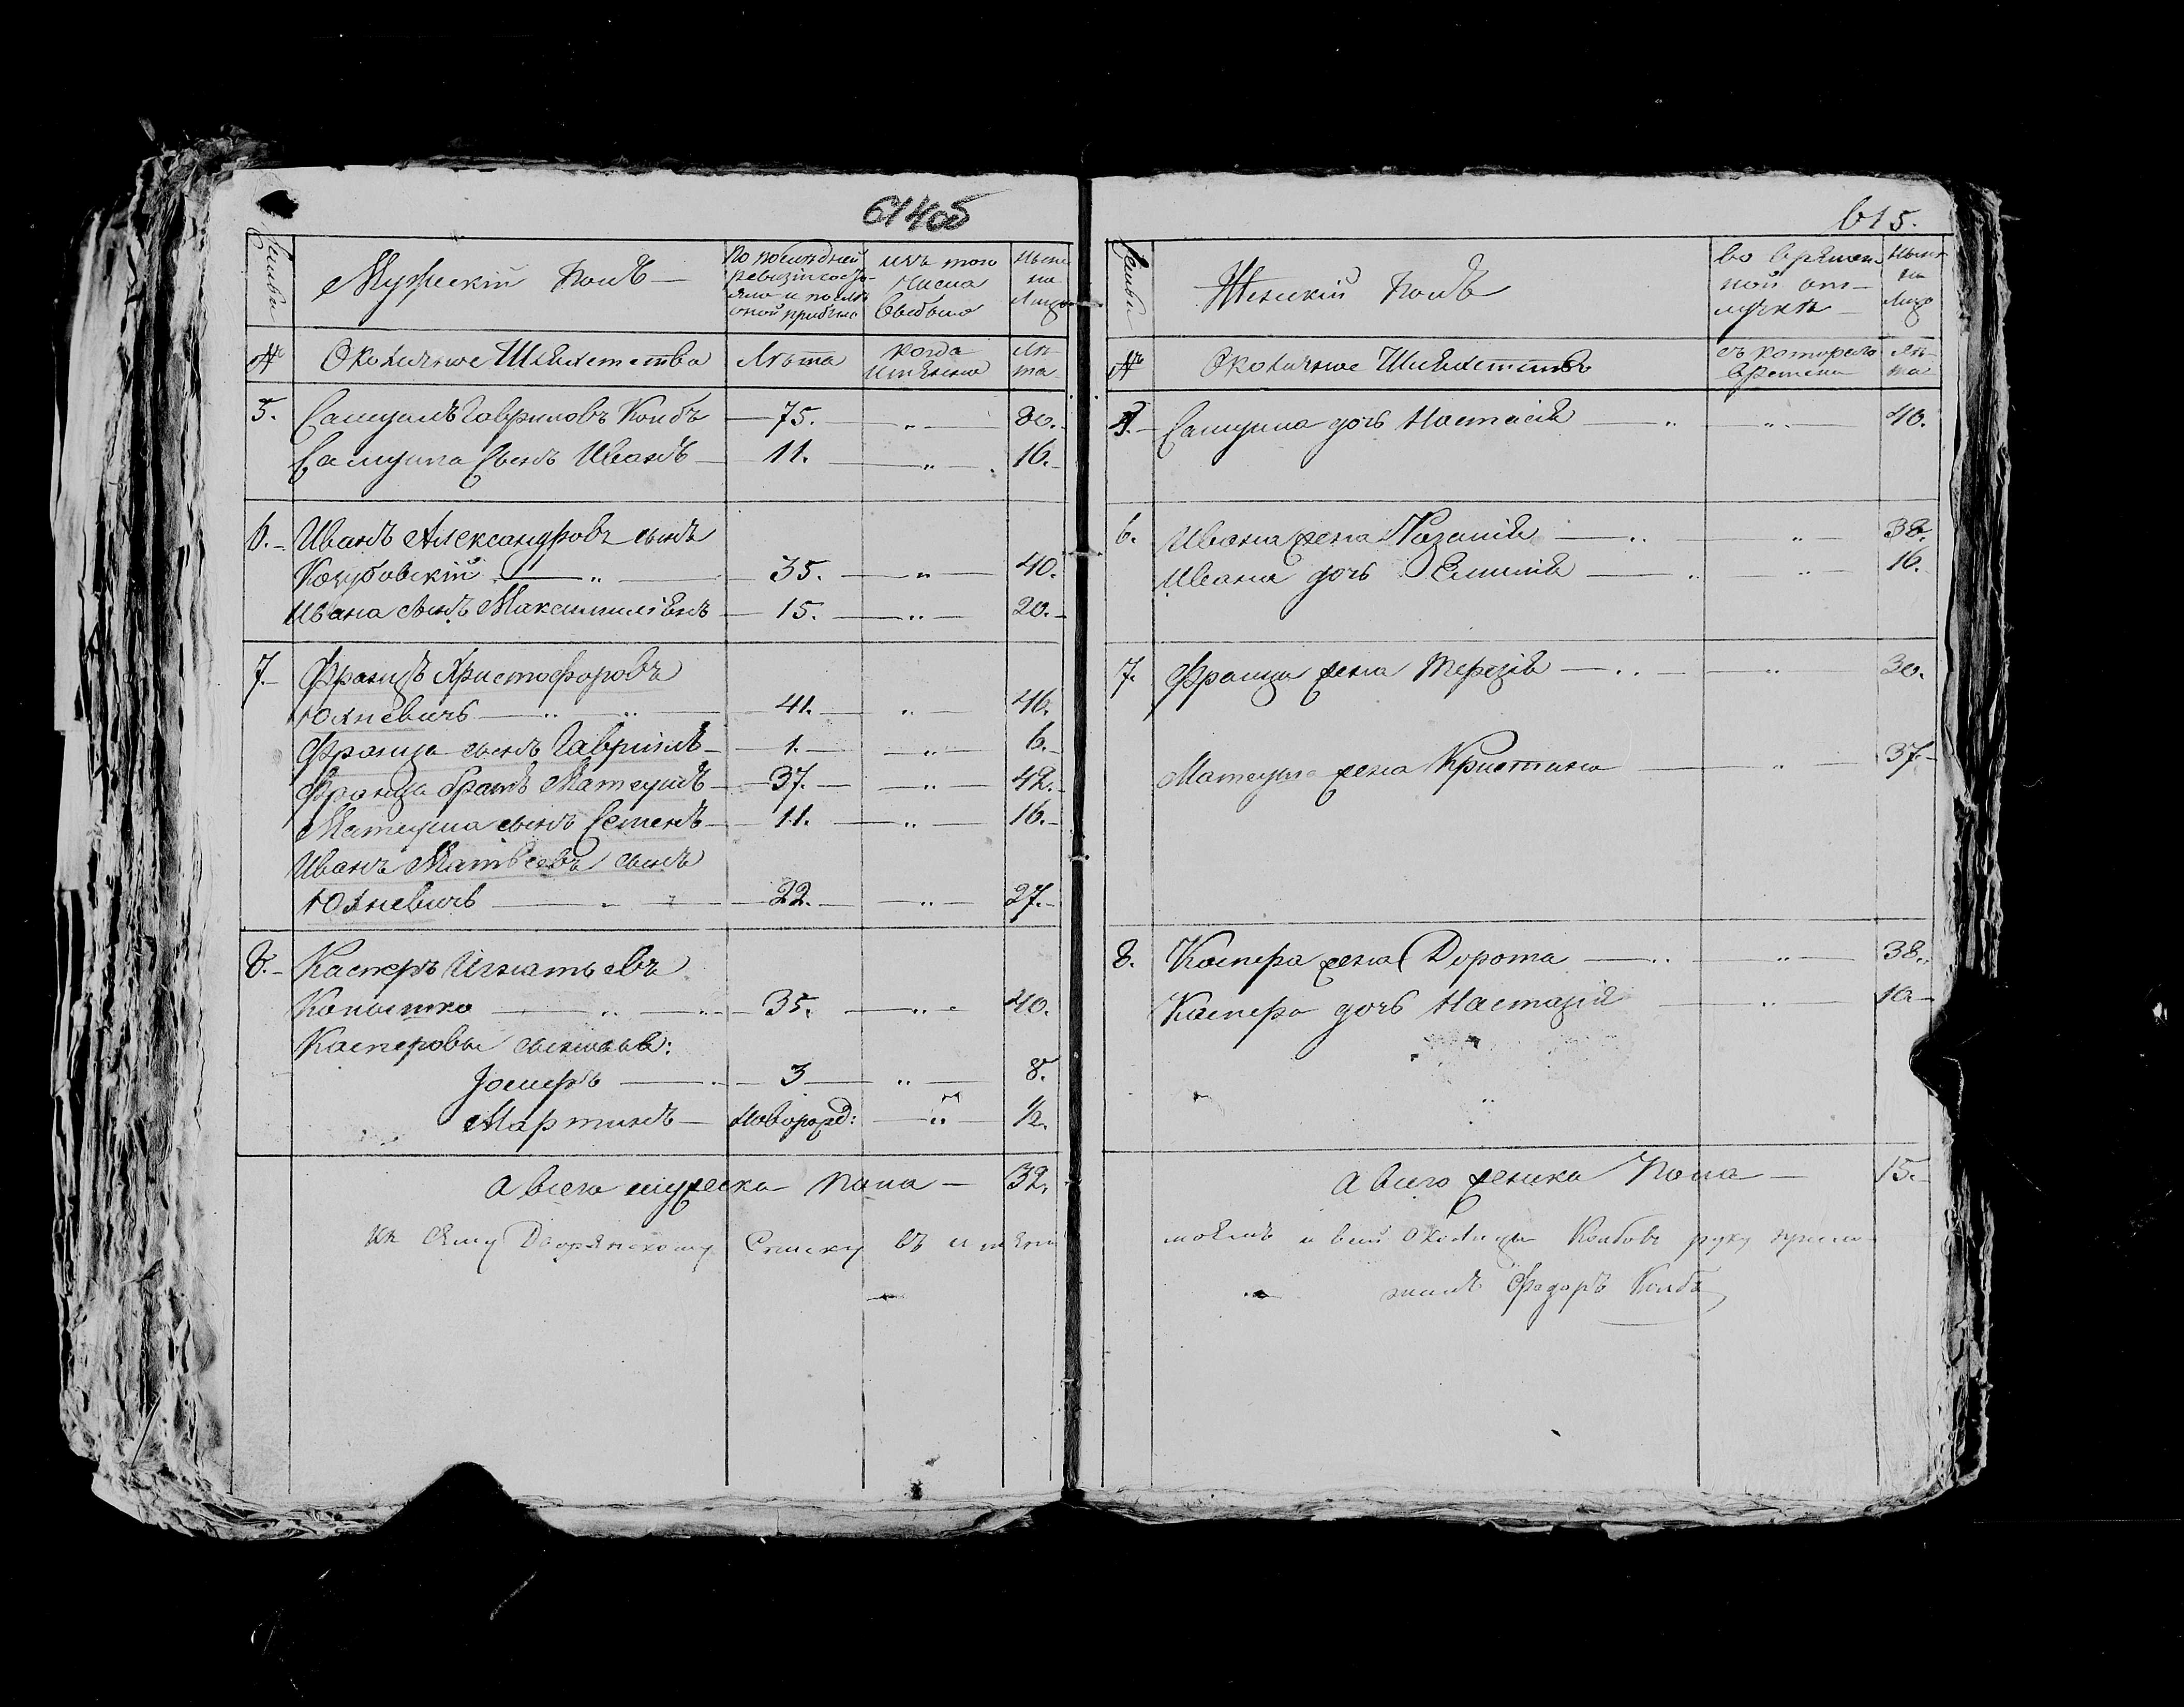 614об
Семьи
Мужескій полъ
По последней ревизіи состо-
яло и после
оной прибыло
изъ того
числа
выбыло
ныне
на
лицо
№
Околичные Шляхетства
Лѣта
когда
имянно
лѣ-
та
5. Самуилъ Гавриловъ Колбъ — 75. — „ — 80.
Самуила сынъ Иванъ — 11. — „ — 16.
6. Иванъ Александровъ сынъ
Кочубовскій — „ — 35. — „ — 40.
Ивана сынъ Максимиліянъ — 15. — „ — 20.
7. Францъ Христофоровъ
Юхневичъ — „ „ — 41. — „ — 46.
Франца сынъ Гавріилъ — 1. — „ — 6.
Франца братъ Матеушъ — 37. — „ — 42.
Матеуша сынъ Семенъ — 11. — „ — 16.
Иванъ Матвеевъ сынъ
Юхневичъ — „ — 22. — „ — 27.
8. Касперъ Игнатьевъ
Копытко — „ — „ — 35. — „ — 40.
Касперовы сыновья:
Іосифъ — 3 — „ — 8.
Мартинъ — Новорожд: — „ — 1/2.
А всего мужеска пола — 32.
Къ сему Дворянскому Списку въ имяни
615.
Семьи
Женскій полъ
во времян-
ной от-
лучкѣ
ныне
на
лицо
№
Околичные Шляхетства
съ котораго
времени
лѣ-
та
5. Самуила дочь Настасія — „ — „ — 40.
6. Ивана жена Розалія — „ — „ — 38.
Ивана дочь Емилія — „ — „ — 16.
7. Франца жена Терезія — „ — „ — 30.
Матеуша жена Кристина — „ — 37.
8. Каспера жена Дорота — „ — „ — 38.
Каспера дочь Настазія — „ — 10.
А всего женска пола — 15.
моемъ и всей околицы Колбовъ руку прило-
жилъ Федоръ Колбъ